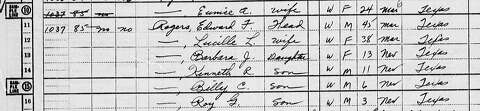 10 1037 85 no — Eunice A. wife W F 24 mar Texas
11 1037 85 no no Rogers, Edward F. Head W M 45 mar Texas
12 —, Lucille L. wife W F 38 mar Texas
—, Barbara J. Daughter W F 13 Nev Texas
14 —, Kenneth R. son W M 11 Nev Texas
15 —, Billy C. son W M 6 Nev Texas
16 —, Roy G. son W M 3 Nev Texas